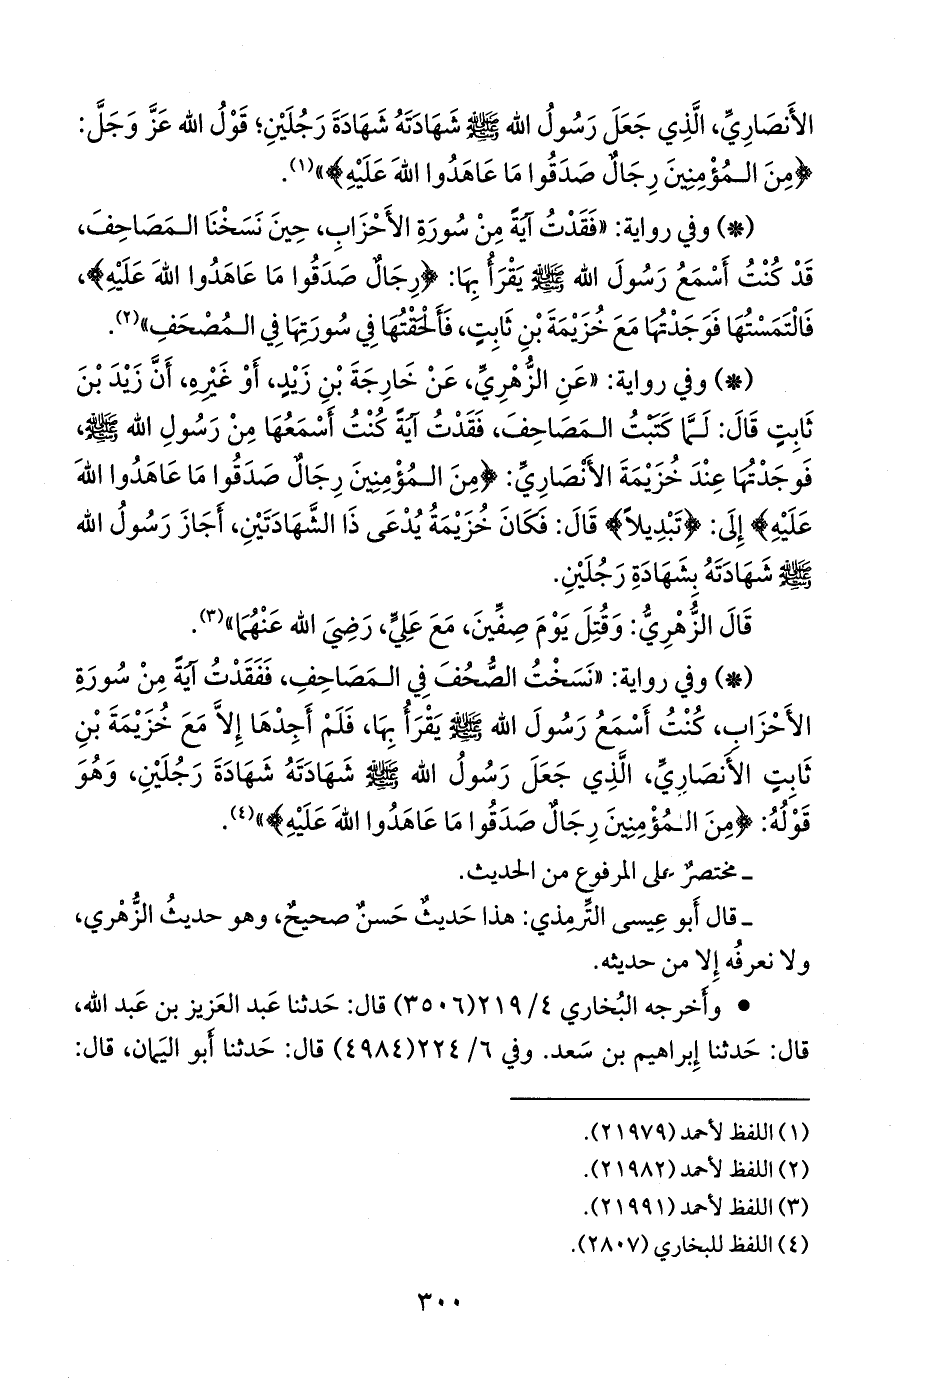 الأَنصَارِيِّ، الَّذِي جَعَلَ رَسُولُ الله ﷺ شَهَادَتَهُ شَهَادَةَ رَجُلَيْنِ؛ قَوْلُ الله عَزَّ وَجَلَّ:
﴿مِنَ الـمُؤْمِنِينَ رِجَالٌ صَدَقُوا مَا عَاهَدُوا اللهَ عَلَيْهِ﴾»(١).
(*) وفي رواية: «فَقَدْتُ آيَةً مِنْ سُورَةِ الأَحْزَابِ، حِينَ نَسَخْنَا الـمَصَاحِفَ،
قَدْ كُنْتُ أَسْمَعُ رَسُولَ الله ﷺ يَقْرَأُ بِهَا: ﴿رِجَالٌ صَدَقُوا مَا عَاهَدُوا اللهَ عَلَيْهِ﴾،
فَالْتَمَسْتُهَا فَوَجَدْتُهَا مَعَ خُزَيْمَةَ بْنِ ثَابِتٍ، فَأَلْحَقْتُهَا فِي سُورَتِهَا فِي الـمُصْحَفِ»(٢).
(*) وفي رواية: «عَنِ الزُّهْرِيِّ، عَنْ خَارِجَةَ بْنِ زَيْدٍ، أَوْ غَيْرِهِ، أَنَّ زَيْدَ بْنَ
ثَابِتٍ قَالَ: لَـمَّا كَتَبْتُ الـمَصَاحِفَ، فَقَدْتُ آيَةً كُنْتُ أَسْمَعُهَا مِنْ رَسُولِ الله ﷺ،
فَوَجَدْتُهَا عِنْدَ خُزَيْمَةَ الأَنْصَارِيِّ: ﴿مِنَ الـمُؤْمِنِينَ رِجَالٌ صَدَقُوا مَا عَاهَدُوا اللهَ
عَلَيْهِ﴾ إِلَى: ﴿تَبْدِيلاً﴾ قَالَ: فَكَانَ خُزَيْمَةُ يُدْعَى ذَا الشَّهَادَتَيْنِ، أَجَازَ رَسُولُ الله
ﷺ شَهَادَتَهُ بِشَهَادَةِ رَجُلَيْنِ.
قَالَ الزُّهْرِيُّ: وَقُتِلَ يَوْمَ صِفِّينَ، مَعَ عَلِيٍّ، رَضِيَ الله عَنْهُمَا»(٣).
(*) وفي رواية: «نَسَخْتُ الصُّحُفَ فِي الـمَصَاحِفِ، فَفَقَدْتُ آيَةً مِنْ سُورَةِ
الأَحْزَابِ، كُنْتُ أَسْمَعُ رَسُولَ الله ﷺ يَقْرَأُ بِهَا، فَلَمْ أَجِدْهَا إِلاَّ مَعَ خُزَيْمَةَ بْنِ
ثَابِتٍ الأَنصَارِيِّ، الَّذِي جَعَلَ رَسُولُ الله ﷺ شَهَادَتَهُ شَهَادَةَ رَجُلَيْنِ، وَهُوَ
قَوْلُهُ: ﴿مِنَ الـمُؤْمِنِينَ رِجَالٌ صَدَقُوا مَا عَاهَدُوا اللهَ عَلَيْهِ﴾»(٤).
ـ مختصرٌ على المرفوع من الحديث.
ـ قال أَبو عِيسى التِّرمِذي: هذا حَديثٌ حَسنٌ صحيحٌ، وهو حديثُ الزُّهْري،
ولا نعرفُه إِلا من حديثه.
• وأَخرجه البُخاري ٤/ ٢١٩(٣٥٠٦) قال: حَدثنا عَبد العَزيز بن عَبد الله،
قال: حَدثنا إِبراهيم بن سَعد. وفي ٦/ ٢٢٤(٤٩٨٤) قال: حَدثنا أَبو اليَمان، قال:
(١) اللفظ لأحمد (٢١٩٧٩).
(٢) اللفظ لأحمد (٢١٩٨٢).
(٣) اللفظ لأحمد (٢١٩٩١).
(٤) اللفظ للبخاري (٢٨٠٧).
٣٠٠